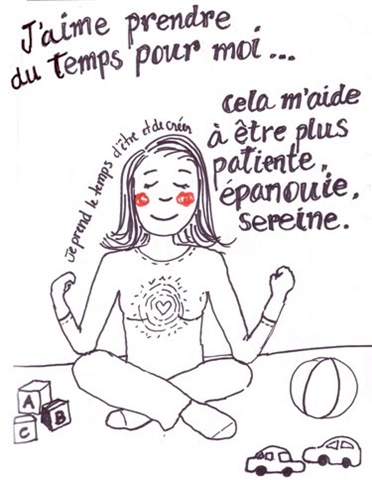 J'aime prendre
du temps pour moi...
cela m'aide
à être plus
patiente,
épanouie,
sereine.
Je prend le temps d'être et de créer
A
B
C